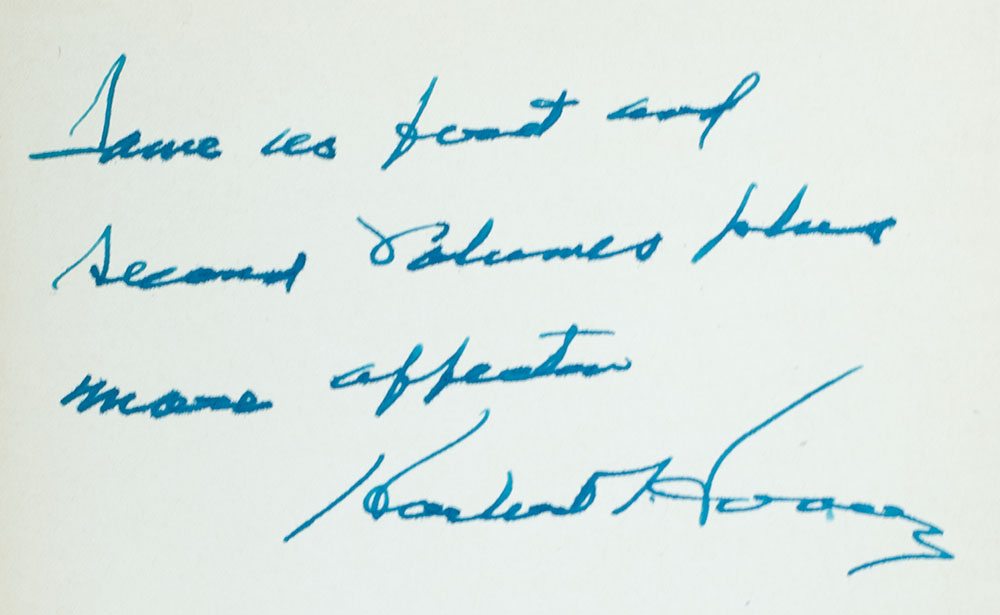 Same as first and
second Volumes plus
more affection
Herbert Hoover